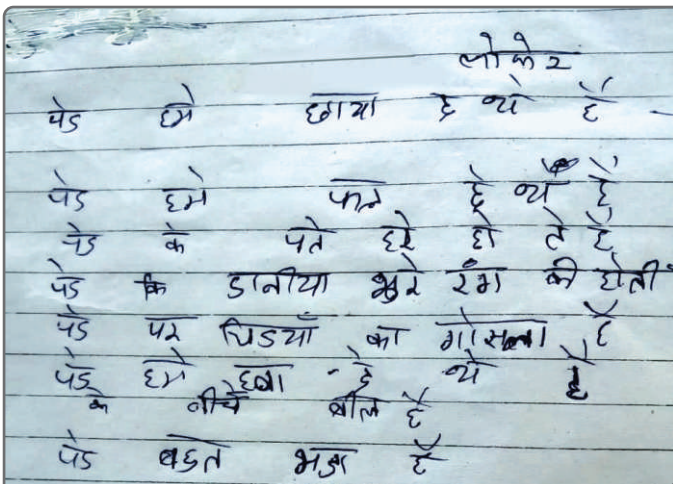 लोकेर
पेड हमे छाया दे थ्ये हैं
पेड हमे फल दे थ्ये हैं
पेड के पते हरे हो ते हैं
पेड कि डालीया भुरे रंग की होती
पेड पर चिडयाँ का गोसला है
पेड हमे हवा दे थ्ये हैं
के नीचे बील है
पेड बहुत भडा हैं